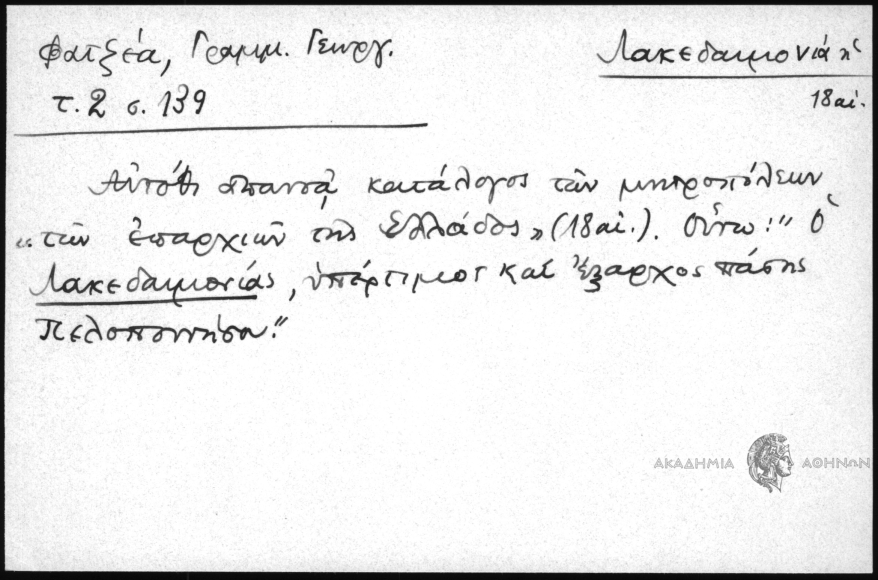 Φατζέα, Γραμμ. Γεωργ.
τ. 2 σ. 139
Λακεδαιμονιά ἡ
18 αἰ.
Αὐτόθι ἅπαντᾷ κατάλογος τῶν μητροπόλεων
"τῶν ἐπαρχιῶν τῆς Ἑλλάδος" (18 αἰ.). Οὕτω: "Ὁ
Λακεδαιμονίας, ὑπέρτιμος καὶ ἔξαρχος πάσης
Πελοποννήσου."
ΑΚΑΔΗΜΙΑ ΑΘΗΝΩΝ